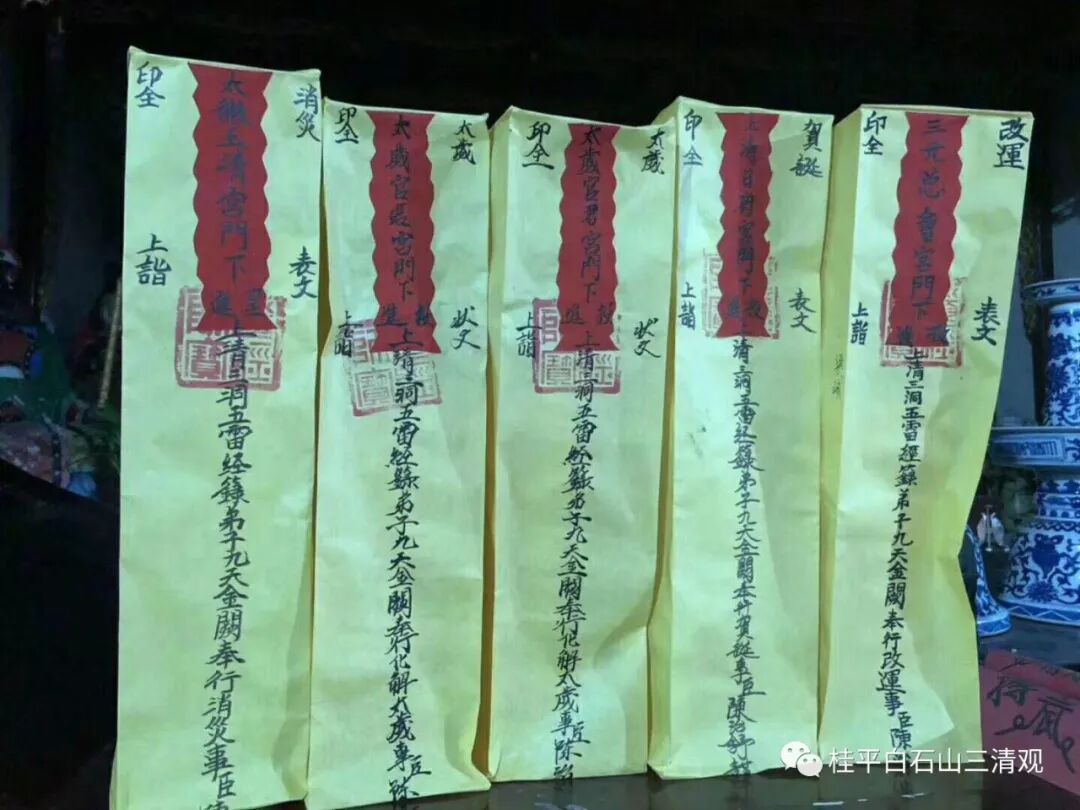 消災
表文
太微玉清宮門下
呈進
上清三洞五雷经籙弟子九天金闕奉行消災事臣
印全
上詣
太歲
狀文
太歲宮
宮門下
上清三洞五雷經籙弟子九天金闕奉行化解太歲事臣陈
印全
上詣
太歲
狀文
太歲宮君宮門下
投進
上清三洞五雷經籙弟子九天金闕奉行化解太歲事臣陈治
印全
上詣
賀誕
表文
宮門下
投進
上清三洞五雷经籙弟子九天金闕奉行賀誕事臣陳治
印全
上詣
改運
表文
三元总會宮門下
投進
上清三洞五雷經籙弟子九天金闕奉行改運事臣陳
印全
上詣
桂平白石山三清观